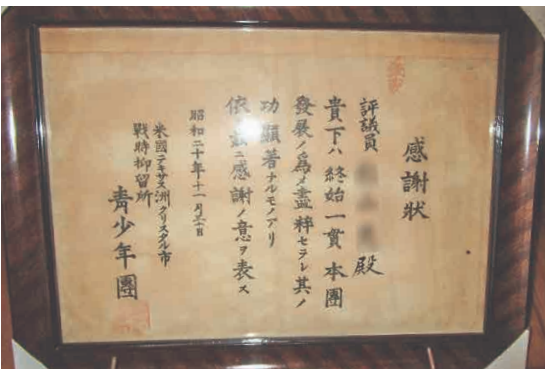 感謝状
評議員 殿
貴下ハ終始一貫本團
發展ノ爲メ盡粹セラレ其ノ
功顯著ナルモノアリ
依而茲ニ感謝ノ意ヲ表ス
昭和二十年十一月三十日
米國テキサス洲クリスタル市
戰時抑留所
靑少年團